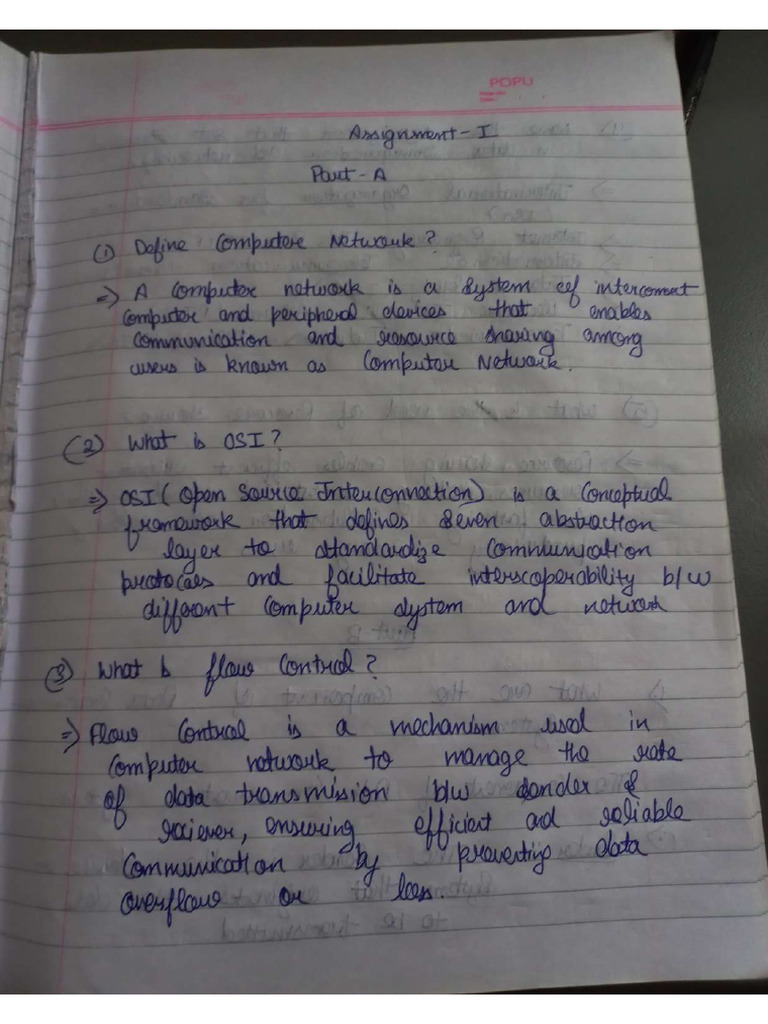 POPU
Assignment - I
Part - A
(1) Define Computer Network?
=> A Computer network is a system of interconnect
computer and peripheral devices that enables
communication and resource sharing among
users is known as Computer Network.
(2) What is OSI?
=> OSI (Open Source Interconnection) is a conceptual
framework that defines seven abstraction
layer to standardize communication
protocols and facilitate interoperability b/w
different computer system and network
(3) What is flow control?
=> Flow control is a mechanism used in
computer network to manage the rate
of data transmission b/w sender &
reciever, ensuring efficient and reliable
communication by preventing data
overflow or loss.